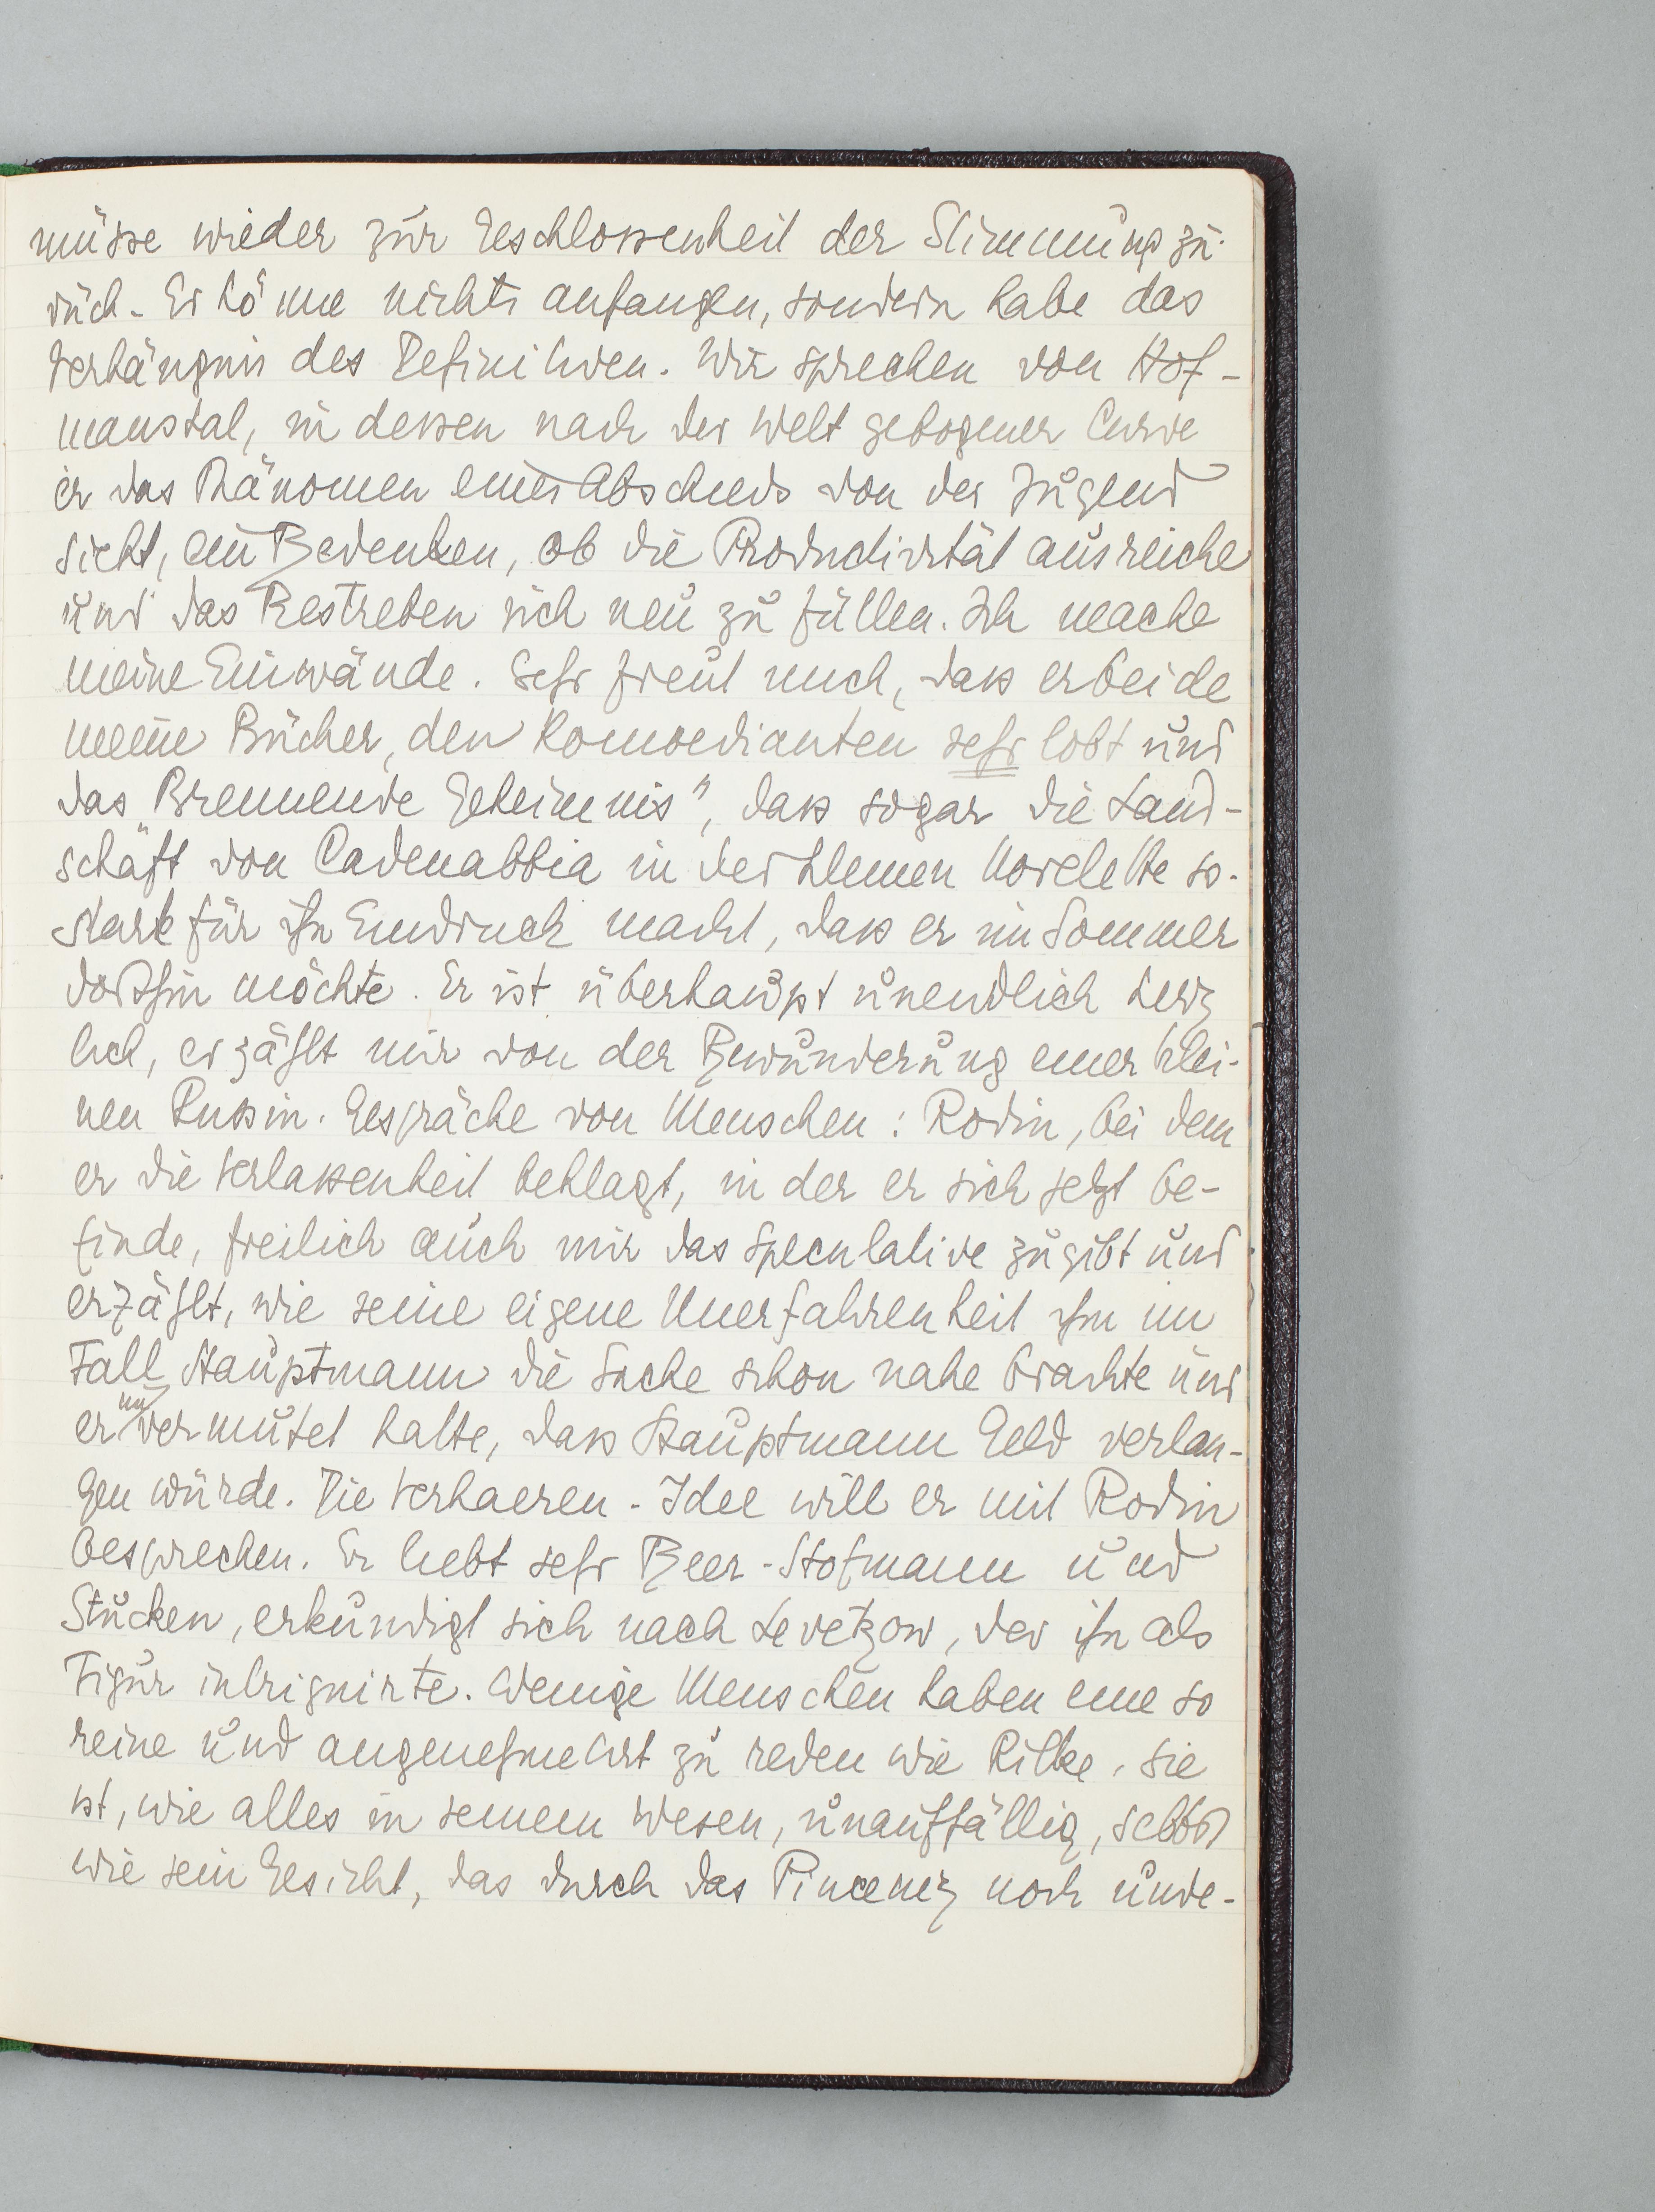 müsse wieder zur Geschlossenheit der Stimmung zu-
rück. Er könne nichts anfangen, sondern habe das
Verhängnis des Definitiven. Wir sprechen von Hof-
manstal, in dessen nach der Welt gebogener Curve
er das Phänomen eines Abschieds von der Jugend
sieht, ein Bedenken, ob die Produktivität ausreiche
und das Bestreben sich neu zu füllen. Ich mache
meine Einwände. Sehr freut mich, dass er beide
meine Bücher, den Komoedianten sehr lobt und
das „Brennende Geheimnis", dass sogar die Land-
schaft von Cadenabbia in der kleinen Novelette so-
stark für ihn Eindruck macht, dass er im Sommer
dorthin möchte. Er ist überhaupt unendlich herz
lich, erzählt mir von der Bewunderung einer klei-
nen Russin. Gespräche von Menschen: Rodin, bei dem
er die Verlassenheit beklagt, in der er sich jetzt be-
finde, freilich auch mir das Speculative zugibt und
erzählt, wie seine eigene Unerfahrenheit ihm im
Fall Hauptmann die Sache schon nahe brachte und
nur
er vermutet hatte, dass Hauptmann Geld verlan-
gen würde. Die Verhaeren-Idee will er mit Rodin
besprechen. Er liebt sehr Beer-Hofmann und
Stucken, erkundigt sich nach Levetzow, der ihn als
Figur intriguirte. Wenige Menschen haben eine so
reine und angenehme Art zu reden wie Rilke, sie
ist, wie alles in seinem Wesen, unauffällig, selbst
wie sein Gesicht, das durch das Pincenez noch unbe-